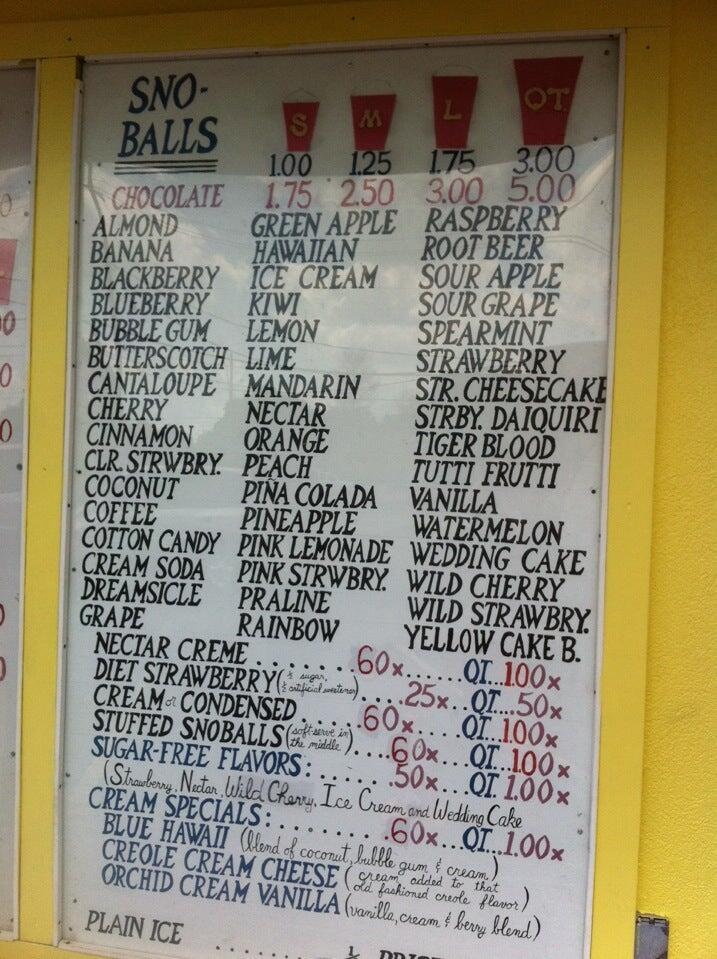 SNO-
BALLS
S M L QT.
1.00 1.25 1.75 3.00
CHOCOLATE 1.75 2.50 3.00 5.00
ALMOND GREEN APPLE RASPBERRY
BANANA HAWAIIAN ROOT BEER
BLACKBERRY ICE CREAM SOUR APPLE
BLUEBERRY KIWI SOUR GRAPE
BUBBLE GUM LEMON SPEARMINT
BUTTERSCOTCH LIME STRAWBERRY
CANTALOUPE MANDARIN STR. CHEESECAKE
CHERRY NECTAR STRBY. DAIQUIRI
CINNAMON ORANGE TIGER BLOOD
CLR. STRWBRY. PEACH TUTTI FRUTTI
COCONUT PIÑA COLADA VANILLA
COFFEE PINEAPPLE WATERMELON
COTTON CANDY PINK LEMONADE WEDDING CAKE
CREAM SODA PINK STRWBRY. WILD CHERRY
DREAMSICLE PRALINE WILD STRAWBRY.
GRAPE RAINBOW YELLOW CAKE B.
NECTAR CREME ....... .60x ...... QT... 1.00x
DIET STRAWBERRY (½ sugar, ½ artificial sweetener) .... .25x ... QT... .50x
CREAM or CONDENSED .... .60x ... QT... 1.00x
STUFFED SNOBALLS (soft-serve in the middle) .... .60x ... QT. 1.00x
SUGAR-FREE FLAVORS: ...... .50x ... QT. 1.00x
(Strawberry, Nectar, Wild Cherry, Ice Cream and Wedding Cake
CREAM SPECIALS: ........ .60x ... QT... 1.00x
BLUE HAWAII (blend of coconut, bubble gum & cream)
CREOLE CREAM CHEESE (cream added to that old fashioned creole flavor)
ORCHID CREAM VANILLA (vanilla, cream & berry blend)
PLAIN ICE ........ ½ PRICE